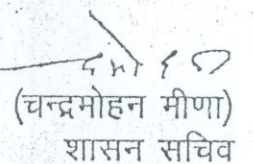 (चन्द्रमोहन मीणा)
शासन सचिव